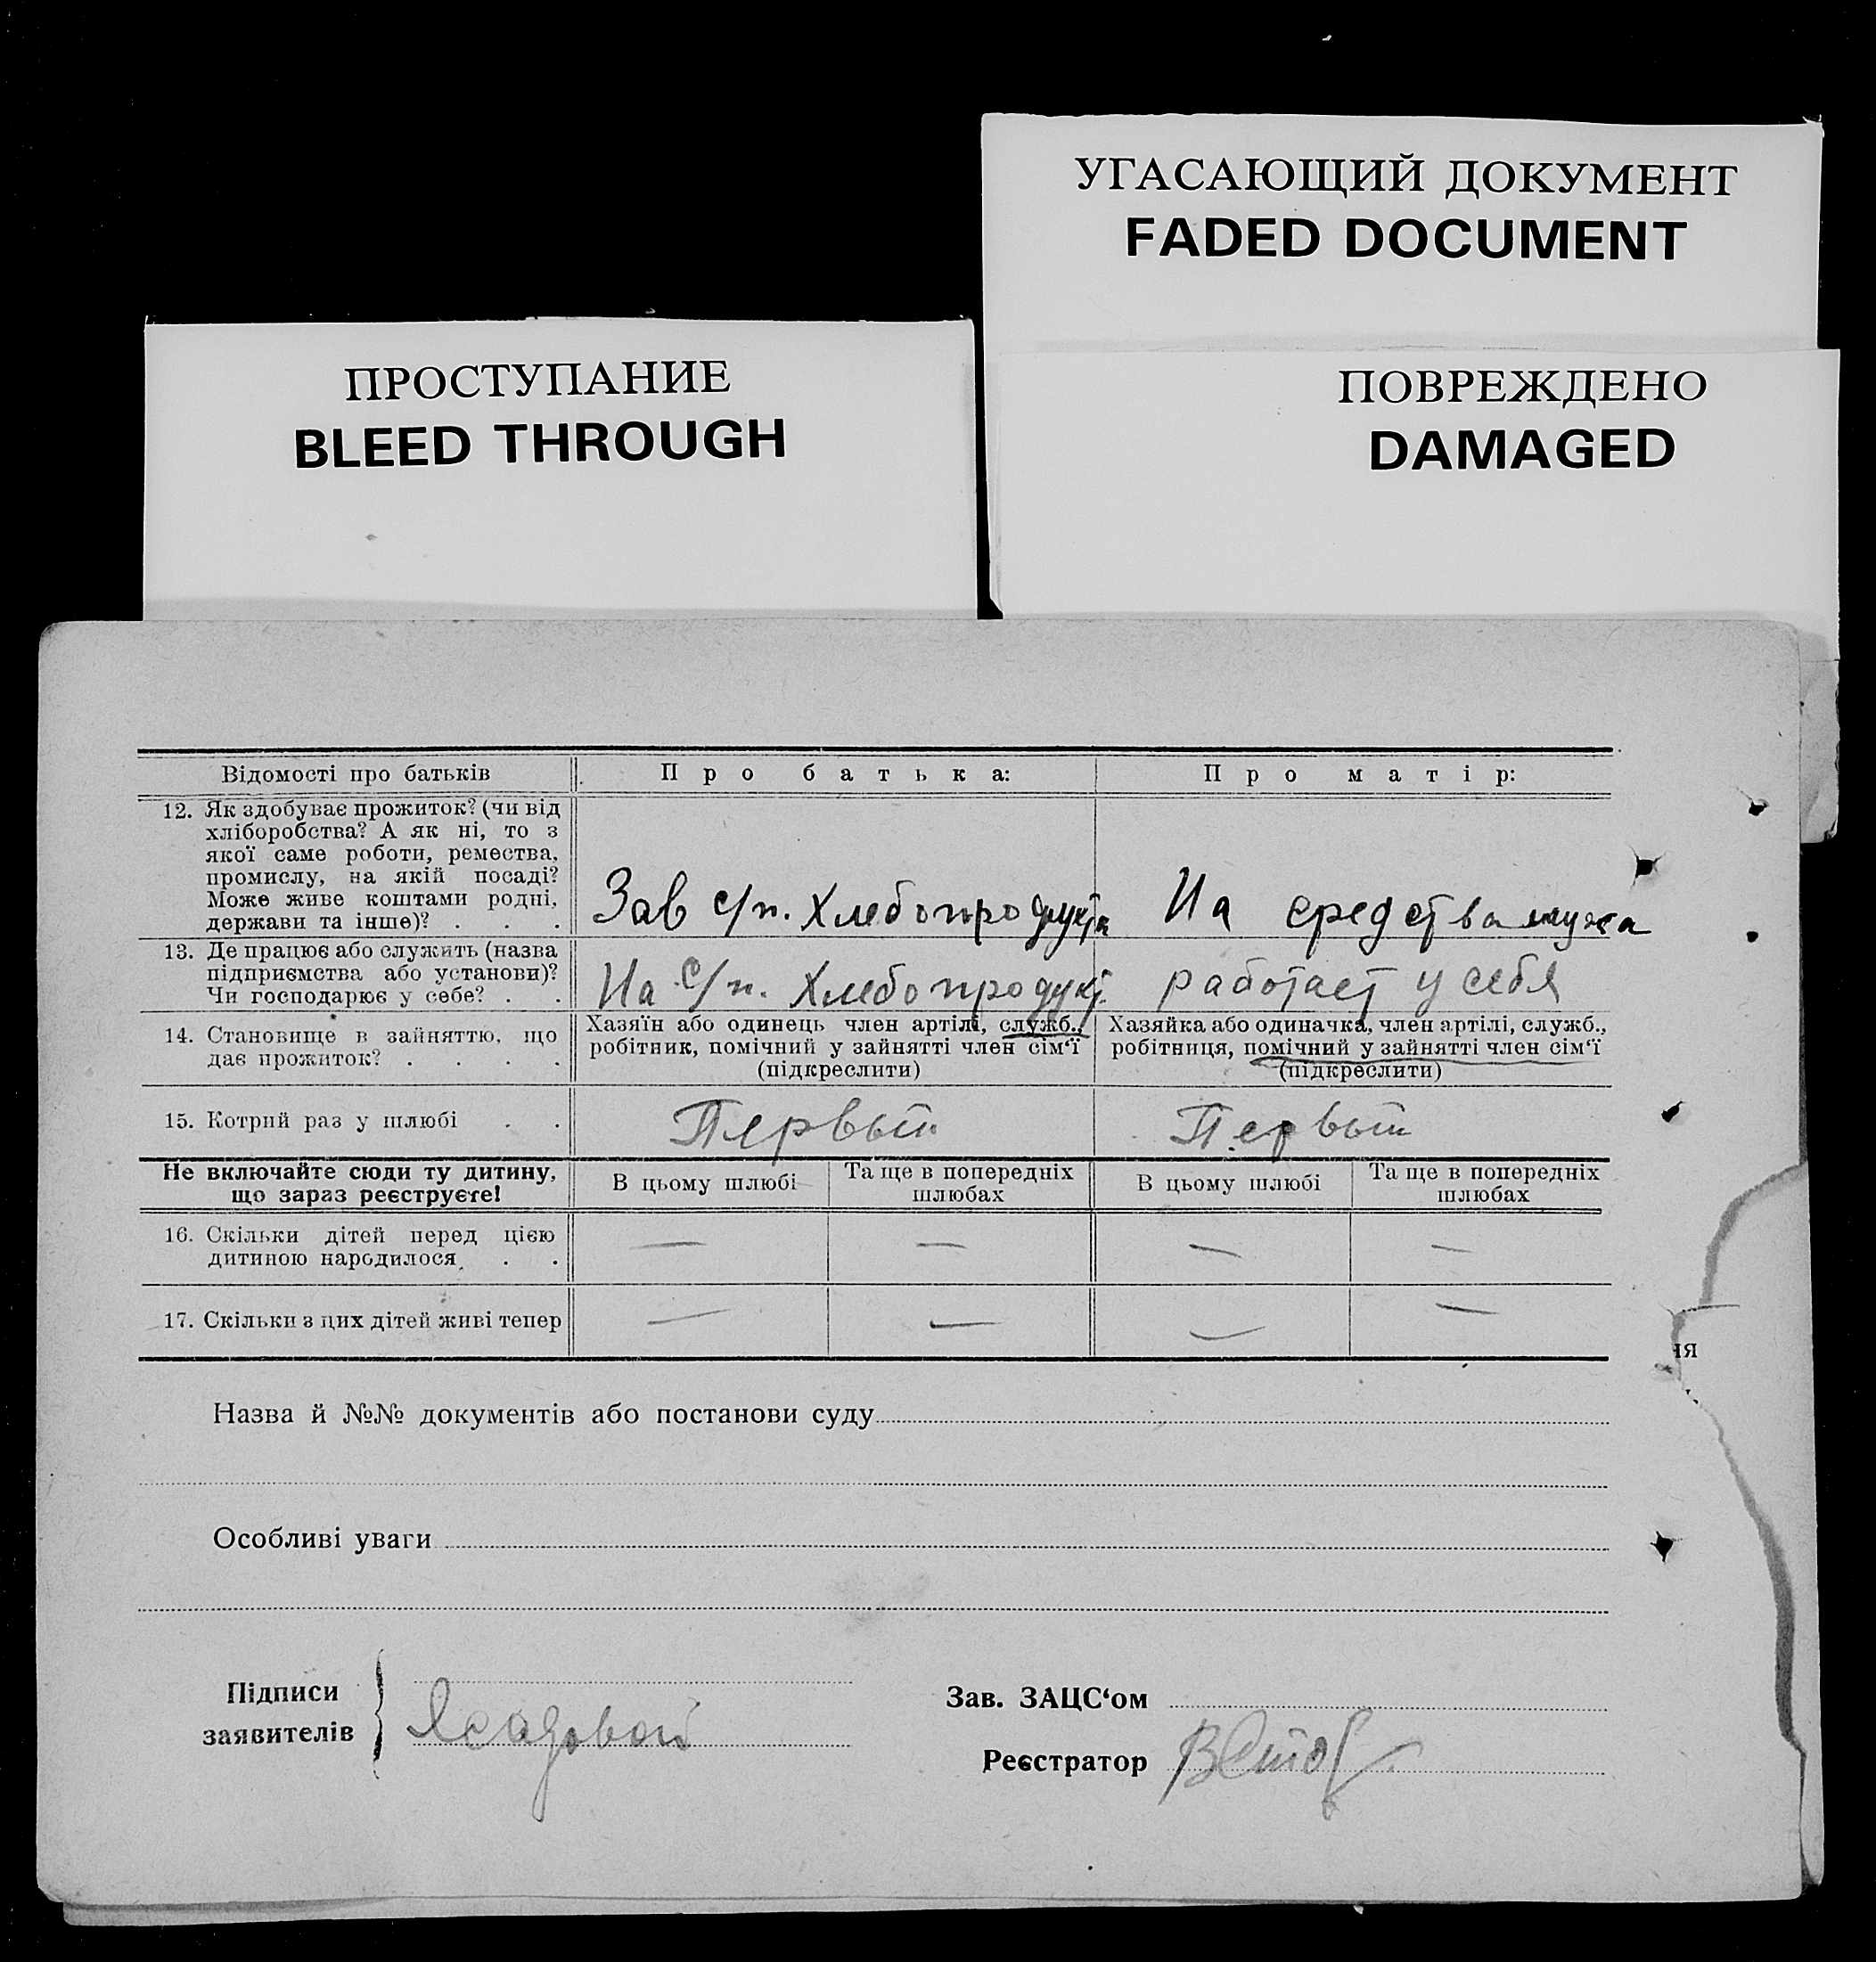 УГАСАЮЩИЙ ДОКУМЕНТ
FADED DOCUMENT
ПРОСТУПАНИЕ
BLEED THROUGH
ПОВРЕЖДЕНО
DAMAGED
Відомості про батьків
Про батька:
Про матір:
12. Як здобуває прожиток? (чи від
хліборобства? А як ні, то з
якої саме роботи, ремества,
промислу, на якій посаді?
Може живе коштами родні,
держави та інше)? . . .
Зав с/п. Хлебопродукта
На средства мужа
13. Де працює або служить (назва
підприємства або установи)?
Чи господарює у себе? . .
На с/п. Хлебопродукт
работает у себя
14. Становище в зайняттю, що
дає прожиток? . . . .
Хазяїн або одинець член артілі, служб.,
робітник, помічний у зайнятті член сім‘ї
(підкреслити)
Хазяйка або одиначка, член артілі, служб.,
робітниця, помічний у зайнятті член сім‘ї
(підкреслити)
15. Котрий раз у шлюбі . .
Первый
Первый
Не включайте сюди ту дитину,
що зараз реєструєте!
В цьому шлюбі
Та ще в попередніх
шлюбах
В цьому шлюбі
Та ще в попередніх
шлюбах
16. Скільки дітей перед цією
дитиною народилося . .
— — — —
17. Скільки з цих дітей живі тепер
— — — —
ія
Назва й №№ документів або постанови суду
Особливі уваги
Підписи
заявителів
Зав. ЗАЦС‘ом
Реєстратор